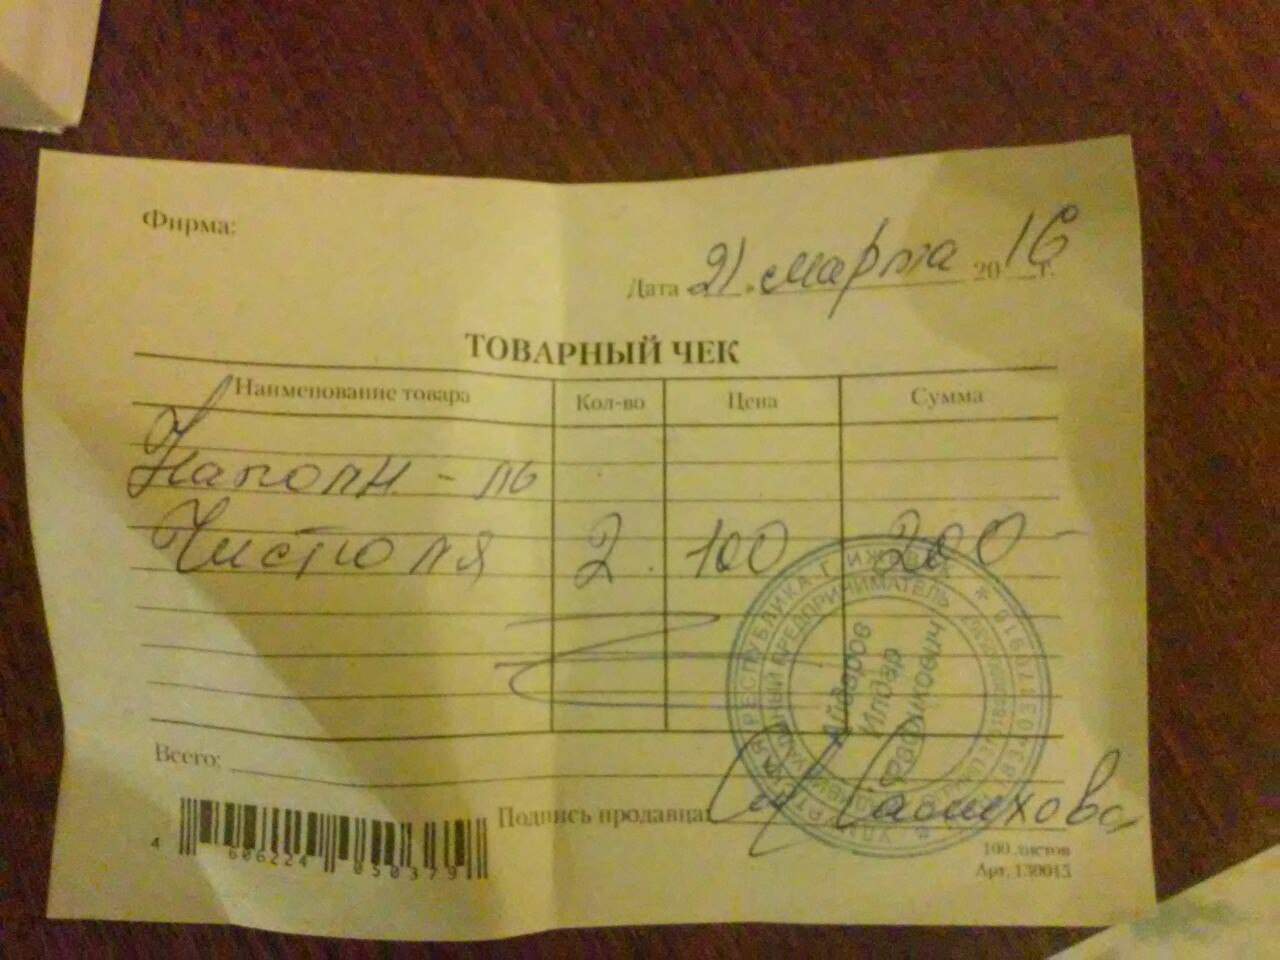 Фирма:
Дата 21. марта 2016 г.
ТОВАРНЫЙ ЧЕК
Наименование товара Кол-во Цена Сумма
Наполн-ль
Чистополя 2. 100 200-
Всего:
Подпись продавца:
4 606224 050379
100 листов
Арт. 130013
РЕСПУБЛИКА Г. ИЖЕВСК
ПРЕДПРИНИМАТЕЛЬ
Айдаров
Илдар